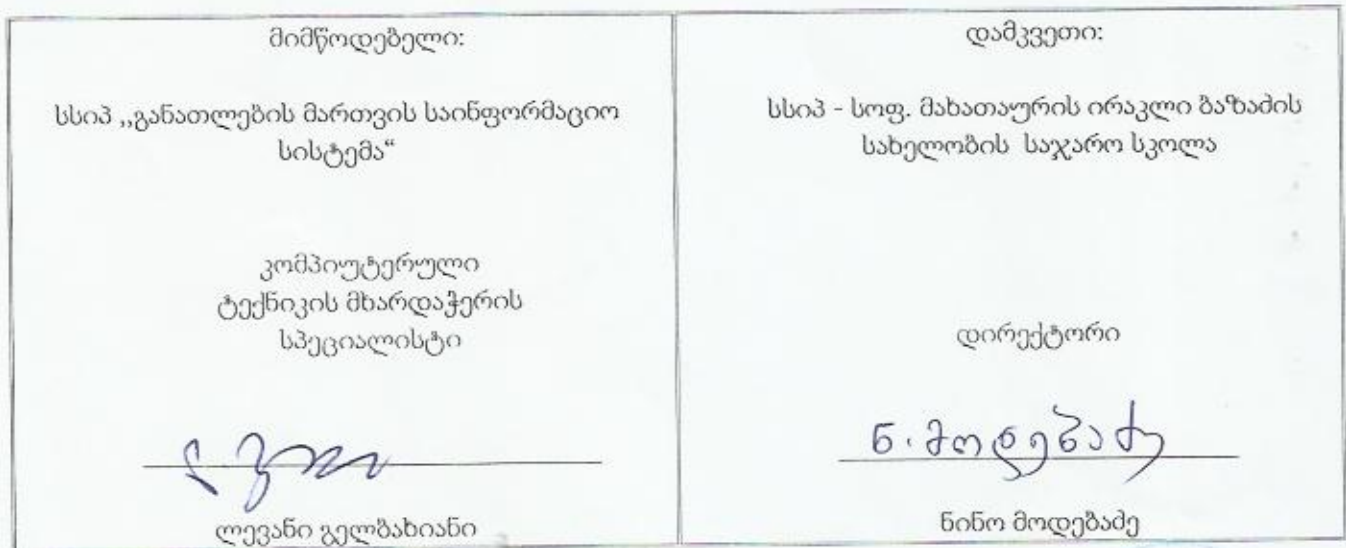 მიმწოდებელი:
სსიპ „განათლების მართვის საინფორმაციო
სისტემა“
კომპიუტერული
ტექნიკის მხარდაჭერის
სპეციალისტი
ლევანი გელბახიანი
დამკვეთი:
სსიპ - სოფ. მახათაურის ირაკლი ბაზაძის
სახელობის საჯარო სკოლა
დირექტორი
ნ. მოდებაძე
ნინო მოდებაძე